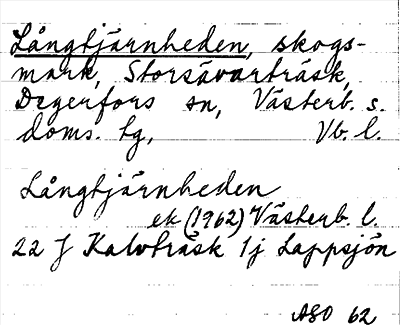 Långtjärnheden, skogs-
mark, Storsävarträsk,
Degerfors sn, Västerb. s.
doms. tg, Vb. l.
Långtjärnheden
ek (1962) Västerb. l.
22 J Kalvträsk 1j Lappsjön
ASO 62